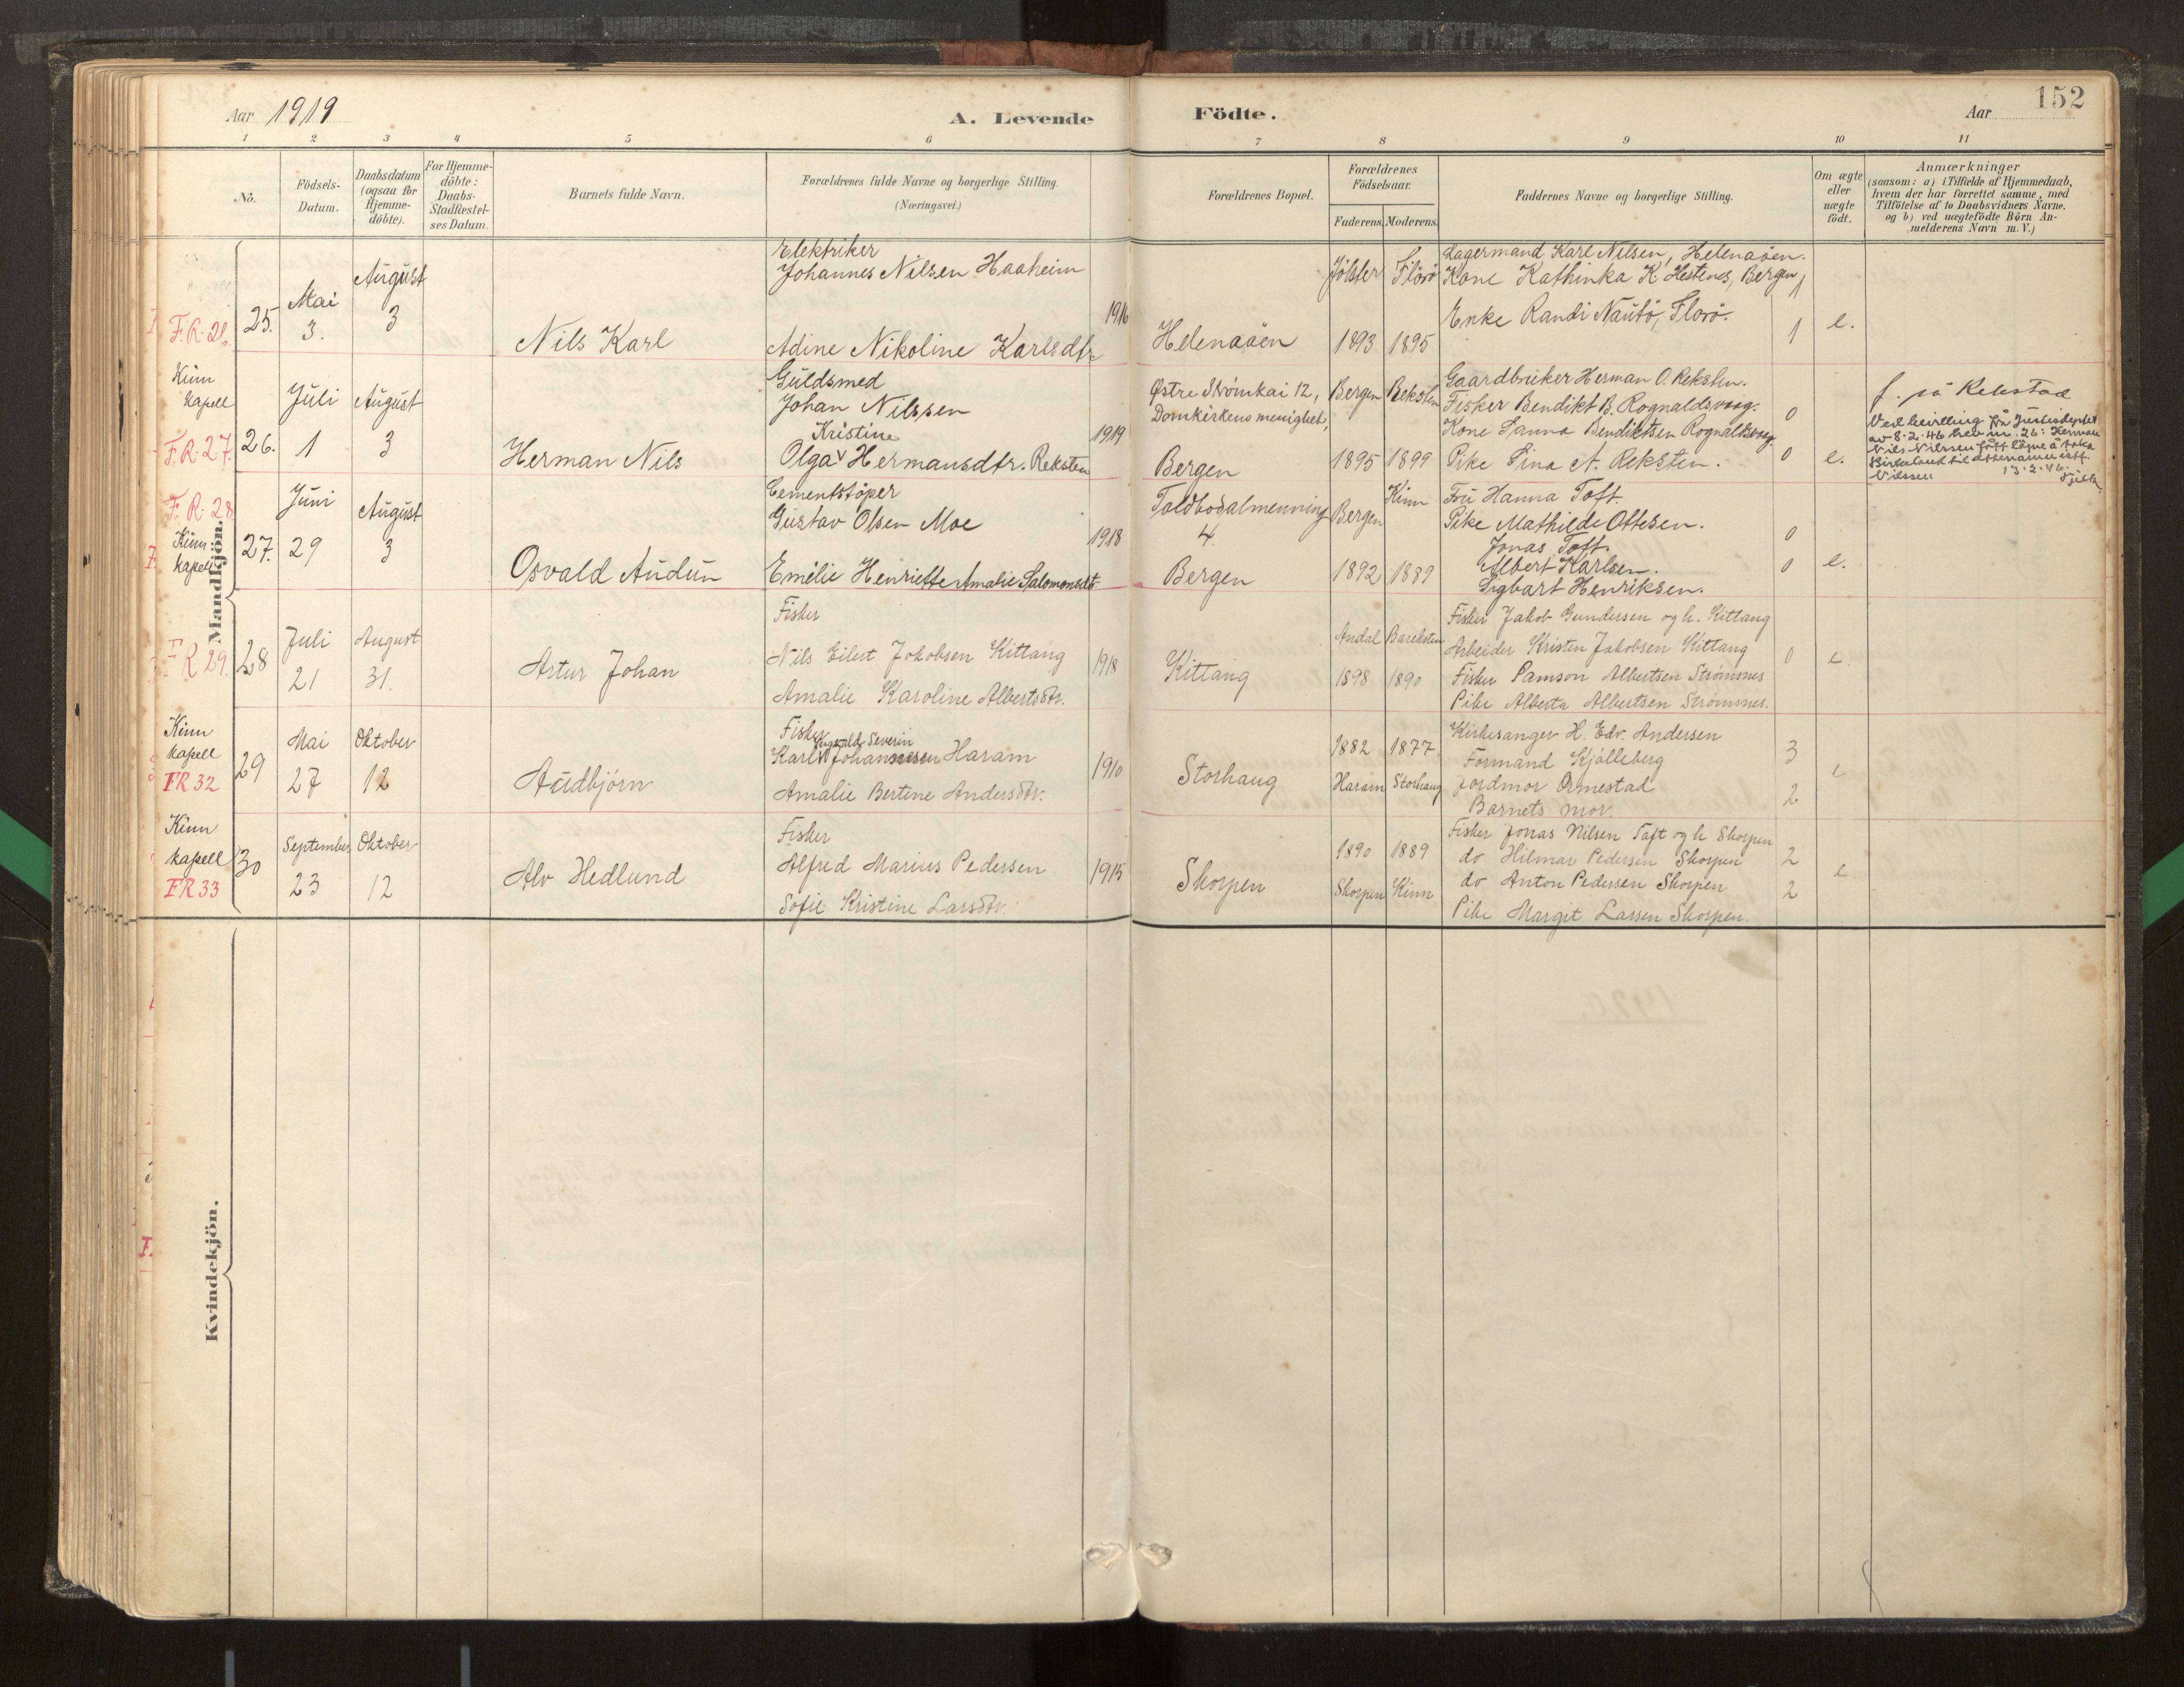 Aar 1919
A. Levende Födte.
Aar
152
1 2 3 4 5 6 7 8 9 10 11
No.
Födsels-
Datum.
Daabsdatum
(ogsaa for
Hjemme-
döbte).
For Hjemme-
döbte:
Daabs-
Stadfæstel-
ses Datum.
Barnets fulde Navn.
Forældrenes fulde Navne og borgerlige Stilling.
(Næringsvei.)
Forældrenes Bopæl.
Forældrenes
Födselsaar.
Faderens. Moderens.
Faddernes Navne og borgerlige Stilling.
Om ægte
eller
uægte
födt.
Anmærkninger
(saasom: a) i Tilfælde af Hjemmedaab,
hvem der har forrettet samme, med
Tilföielse af to Daabsvidners Navne.
og b) ved uægtefödte Börn An-
melderens Navn m. V.)
Mandkjön.
F.R. 26.
25.
Mai
3.
August
3
Nils Karl
Elektriker
Johannes Nilsen Haaheim
1916
Adine Nikoline Karlsdtr.
Helenaöen
Jölster Florö
1893 1895
Lagermand Karl Nilsen, Helenaöen.
Kone Kathinka K. Hestenes, Bergen
Enke Randi Nautö, Florö.
1
1
e.
Kinn
kapell
F.R. 27.
26.
Juli
1
August
3
Herman Nils
Guldsmed
Johan Nilssen
Kristine
1919
Olga v Hermansdtr. Reksten
Østre Strömkai 12,
Domkirkens menighet,
Bergen
Bergen Reksten
1895 1899
Gaardbruker Herman O. Reksten.
Fisker Bendikt B. Rognaldsvaag.
Kone Sanna Bendiktsen Rognaldsvaag
Pike Sina A. Reksten.
0
0
e.
f. på Rekstad
Ved bevilling frå Justisdeptet
av 8.2.46 hev nr. 26: Herman
Nils Nilssen fått löyve å taka
Birkeland til ettenamn istf.
Nilssen 13.2.46.
F.R. 28
Kinn
kapell
27.
Juni
29
August
3
Osvald Audun
Cementstöper
Gustav Olsen Moe
1918
Emelie Henriette Amalie Salomonsdt.
Toldbodalmenning
4.
Bergen
Bergen Kinn
1892 1889
Fru Hanna Toft.
Pike Mathilde Ottesen.
Jonas Toft.
Albert Karlsen.
Sigbart Henriksen.
0
0
e.
F R 29.
28
Juli
21
August
31.
Artur Johan
Fisker
Nils Eilert Jakobsen Kittang
1918
Amalie Karoline Albertsdtr.
Kittang
Andal Bareksten
1898 1890
Fisker Jakob Gundersen og h. Kittang
Arbeider Kristen Jakobsen Kittang
Fisker Samson Albertsen Strömsnes
Pike Alberta Albertsen Strömsnes.
0
e.
Kinn
kapell
FR 32
29
Mai
27
Oktober
12
Audbjörn
Fisker
Severin
Karl Johannesen Haram
1910
Amalie Bertine Andersdtr.
Storhaug
1882 1877
Haram Storhaug
Kirkesanger H. Edv. Andersen
Formand Kjölleberg
Jordmor Ormestad
Barnets mor.
3
2
e
Kinn
kapell
FR 33
30
September
23
Oktober
12
Alv Hedlund
Fisker
Alfred Marius Pedersen
1915
Sofie Kristine Larsdtr.
Skorpen
1890 1889
Skorpen Kinn
Fisker Jonas Nilsen Toft og h Skorpen
do Hilmar Pedersen Skorpen
do Anton Pedersen Skorpen
Pike Margit Larsen Skorpen.
2
2
e
Kvindekjön.